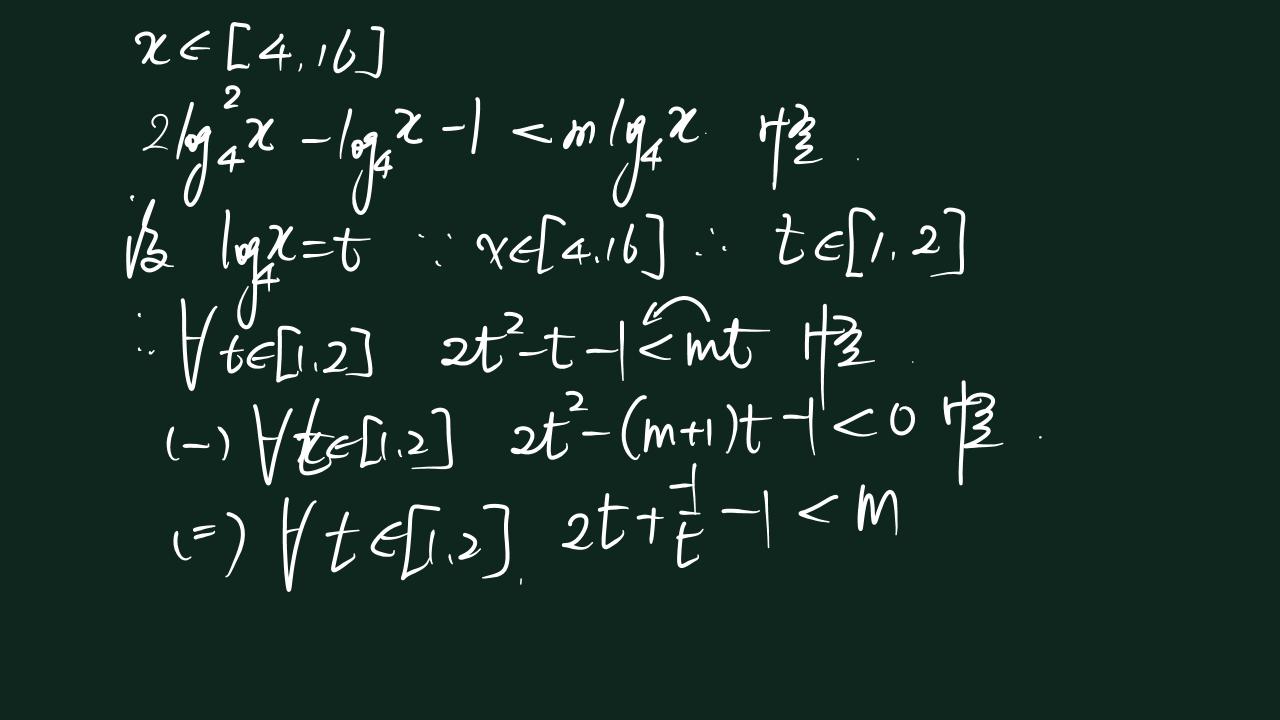 x∈[4,16]
2log₄²x -log₄x -1 < mlog₄x 恒
设 log₄x=t ∵ x∈[4,16] ∴ t∈[1,2]
∴ ∀t∈[1,2] 2t²-t-1<mt 恒
(一) ∀t∈[1,2] 2t²-(m+1)t-1<0 恒
(二) ∀t∈[1,2], 2t+(-1/t)-1<m